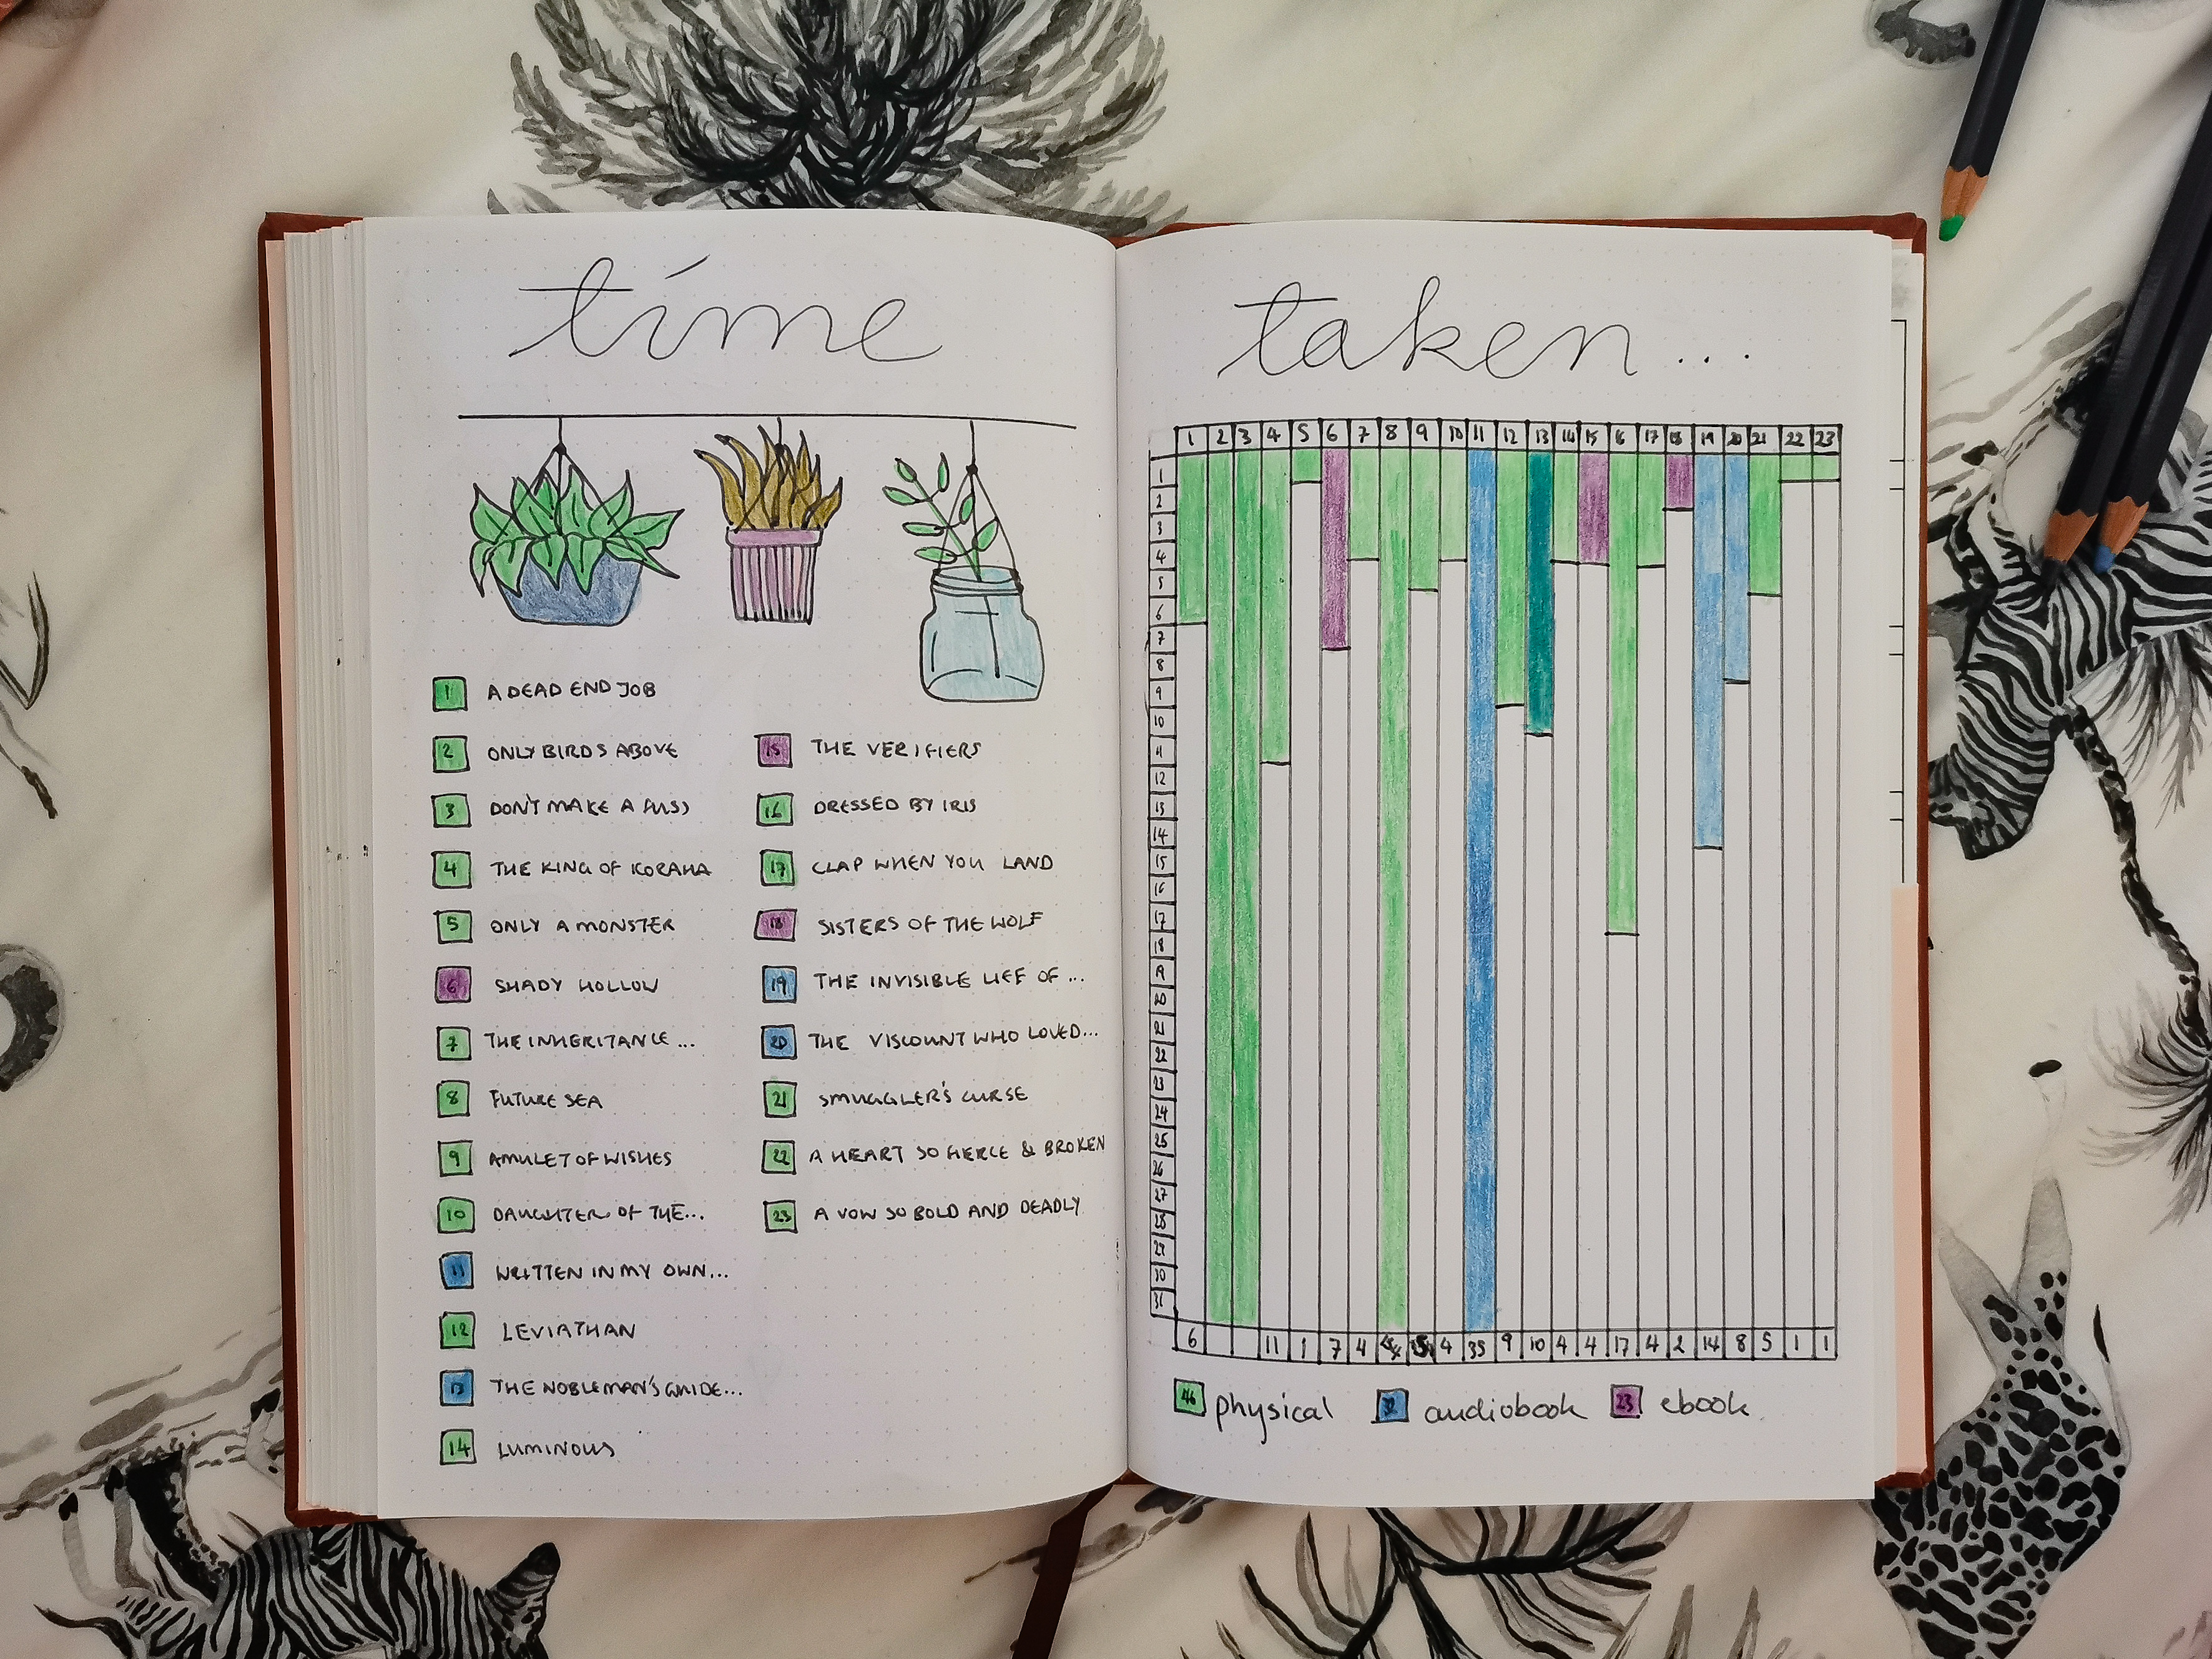 time
1 A DEAD END JOB
2 ONLY BIRDS ABOVE
3 DON'T MAKE A FUSS
4 THE KING OF KORAHA
5 ONLY A MONSTER
6 SHADY HOLLOW
7 THE INHERITANCE ...
8 FUTURE SEA
9 AMULET OF WISHES
10 DAUGHTER OF THE...
11 WRITTEN IN MY OWN...
12 LEVIATHAN
13 THE NOBLEMAN'S GUIDE...
14 LUMINOUS
15 THE VERIFIERS
16 DRESSED BY IRIS
17 CLAP WHEN YOU LAND
18 SISTERS OF THE WOLF
19 THE INVISIBLE LIFE OF ...
20 THE VISCOUNT WHO LOVED...
21 SMUGGLER'S CURSE
22 A HEART SO FIERCE & BROKEN
23 A VOW SO BOLD AND DEADLY
taken...
1 2 3 4 5 6 7 8 9 10 11 12 13 14 15 16 17 18 19 20 21 22 23
1
2
3
4
5
6
7
8
9
10
11
12
13
14
15
16
17
18
19
20
21
22
23
24
25
26
27
28
29
30
31
6 11 1 7 4 4 35 9 10 4 4 17 4 2 14 8 5 1 1
46 physical 32 audiobook 23 ebook